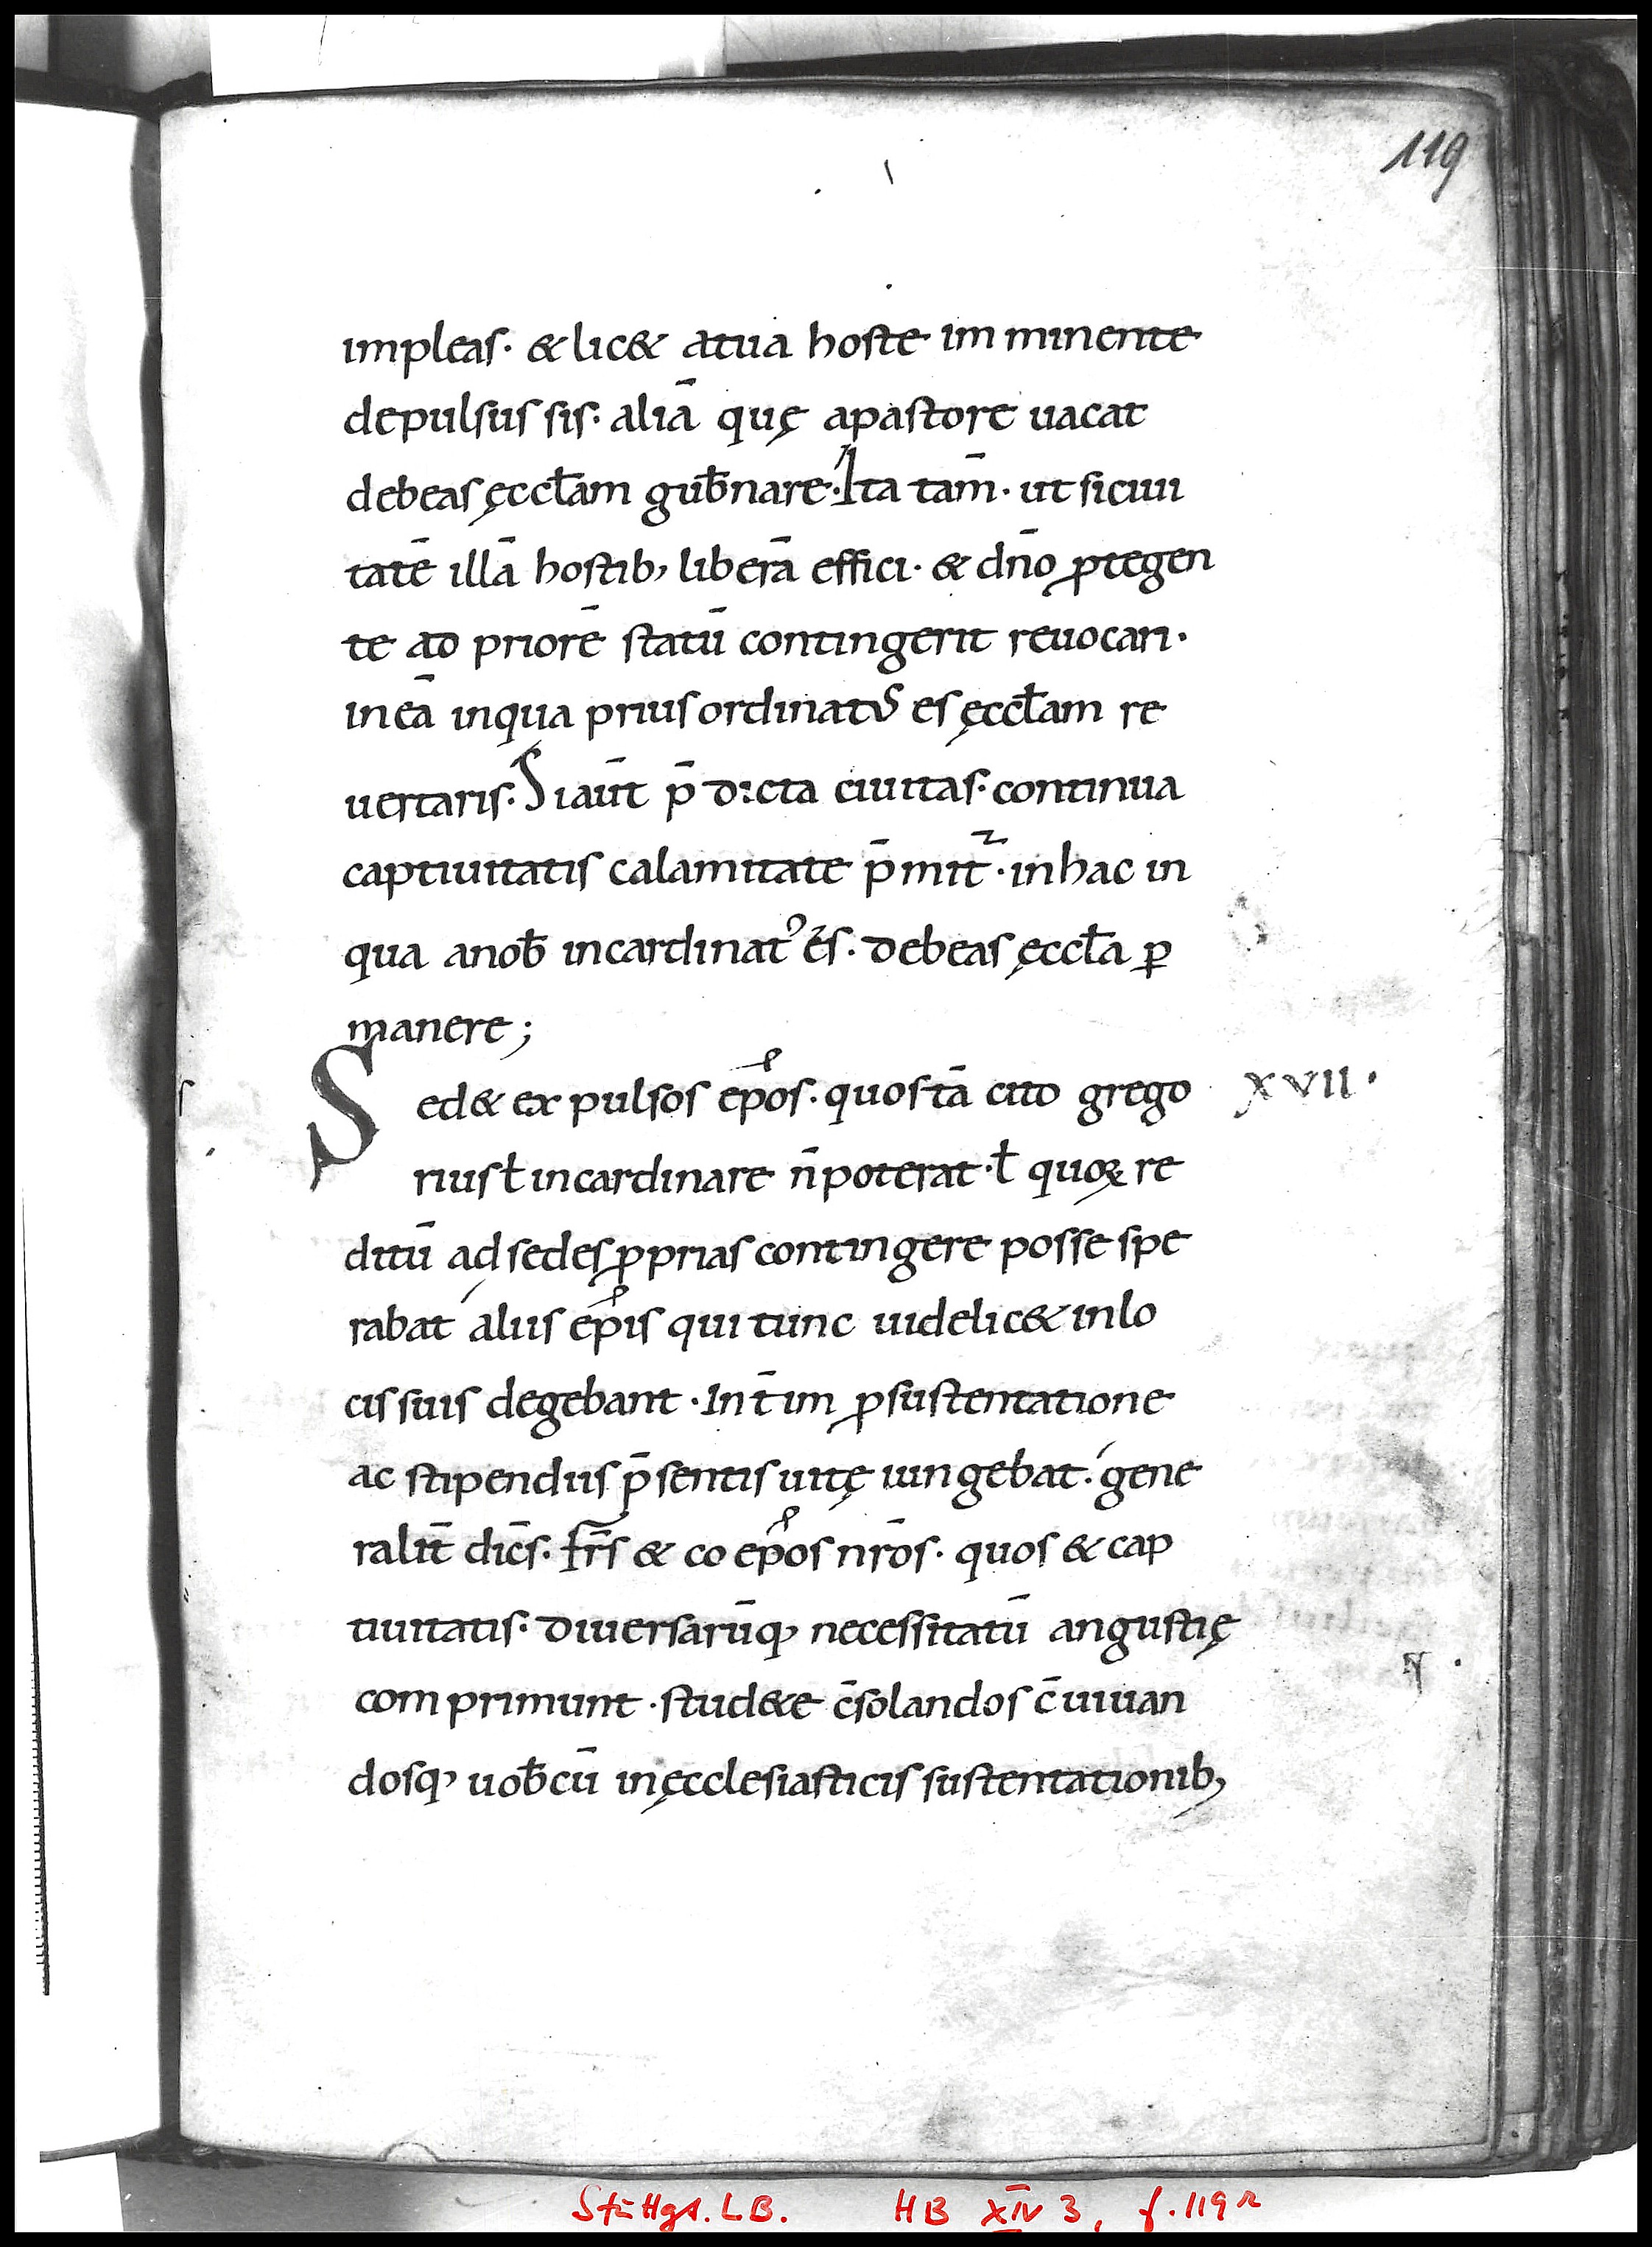 119
impleas· & lic& atua hoste imminente
depulsus sis· aliā quę apastore uacat
debeas ęccƚam gub̄nare· Ita tam̄· ut siciui
tatē illā hostib; liberā effici· & dn̄o ꝓtegen
te ad priorē statū contingerit reuocari·
ineā inqua prius ordinatꝰ es ęccƚam re
uertaris· Siaūt p̄dicta ciuitas· continua
captiuitatis calamitate p̄mit᷑· inhac in
qua anob̄ incardinatꝰ ēs· debeas ęccƚa ꝑ
manere;
Sed& expulsos ep̄os· quos tā cito grego XVII·
rius ƚ incardinare n̄ poterat· ƚ quoꝝ re
ditū ad sedes ꝓprias contingere posse spe
rabat aliis ep̄is qui tunc uidelic& inlo
cis suis degebant· Int̄im ꝓsustentatione
ac stipendiis p̄sentis uitę iungebat· gene
ralit̄ dic̄s· fr̄s & coep̄os nr̄os· quos & cap
tiuitatis· diuersarūq; necessitatū angustię
comprimunt· stud&e c̄solandos c̄uiuan
dosq; uob̄cū inęcclesiasticis sustentationib;
Stuttgt. LB. HB XIV 3, f. 119r